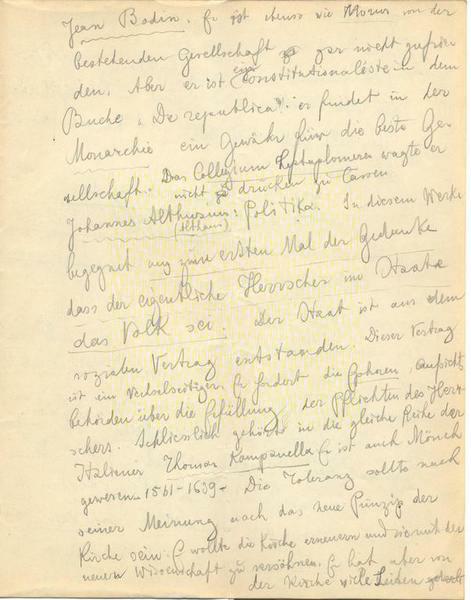 Jean Bodin. Er ist ebenso wie Morus von der
bestehenden Gesellschaft gar nicht zufrie
den. Aber er ist ein Constitutionalist in dem
Buche „De republica". er findet in der
Monarchie ein Gewähr für die beste Ge-
sellschaft. Das Collegium Heptaplomeres wagte er
nicht drucken zu lassen
Johannes Althusius: Politika. In diesem Werke
(Althaus)
begegnet uns zum ersten Mal der Gedanke
dass der eigentliche Herrscher im Staate
das Volk sei. Der Staat ist aus dem
sozialen Vertrag entstanden. Dieser Vertrag
ist ein Wechselseitiger. Er fordert die Ephoren, Aufsichts
behörden über die Erfüllung der Pflichten des Herr-
schers. Schliesslich gehört in die gleiche Reihe der
Italiener Thomas Kampanella Er ist auch Mönch
gewesen 1561-1639 - Die Toleranz sollte nach
seiner Meinung auch das neue Prinzip der
Kirche sein. Er wollte die Kirche erneuern und sie mit der
neuen Wissenschaft zu versöhnen. Er hat aber von
der Kirche viele Leiden